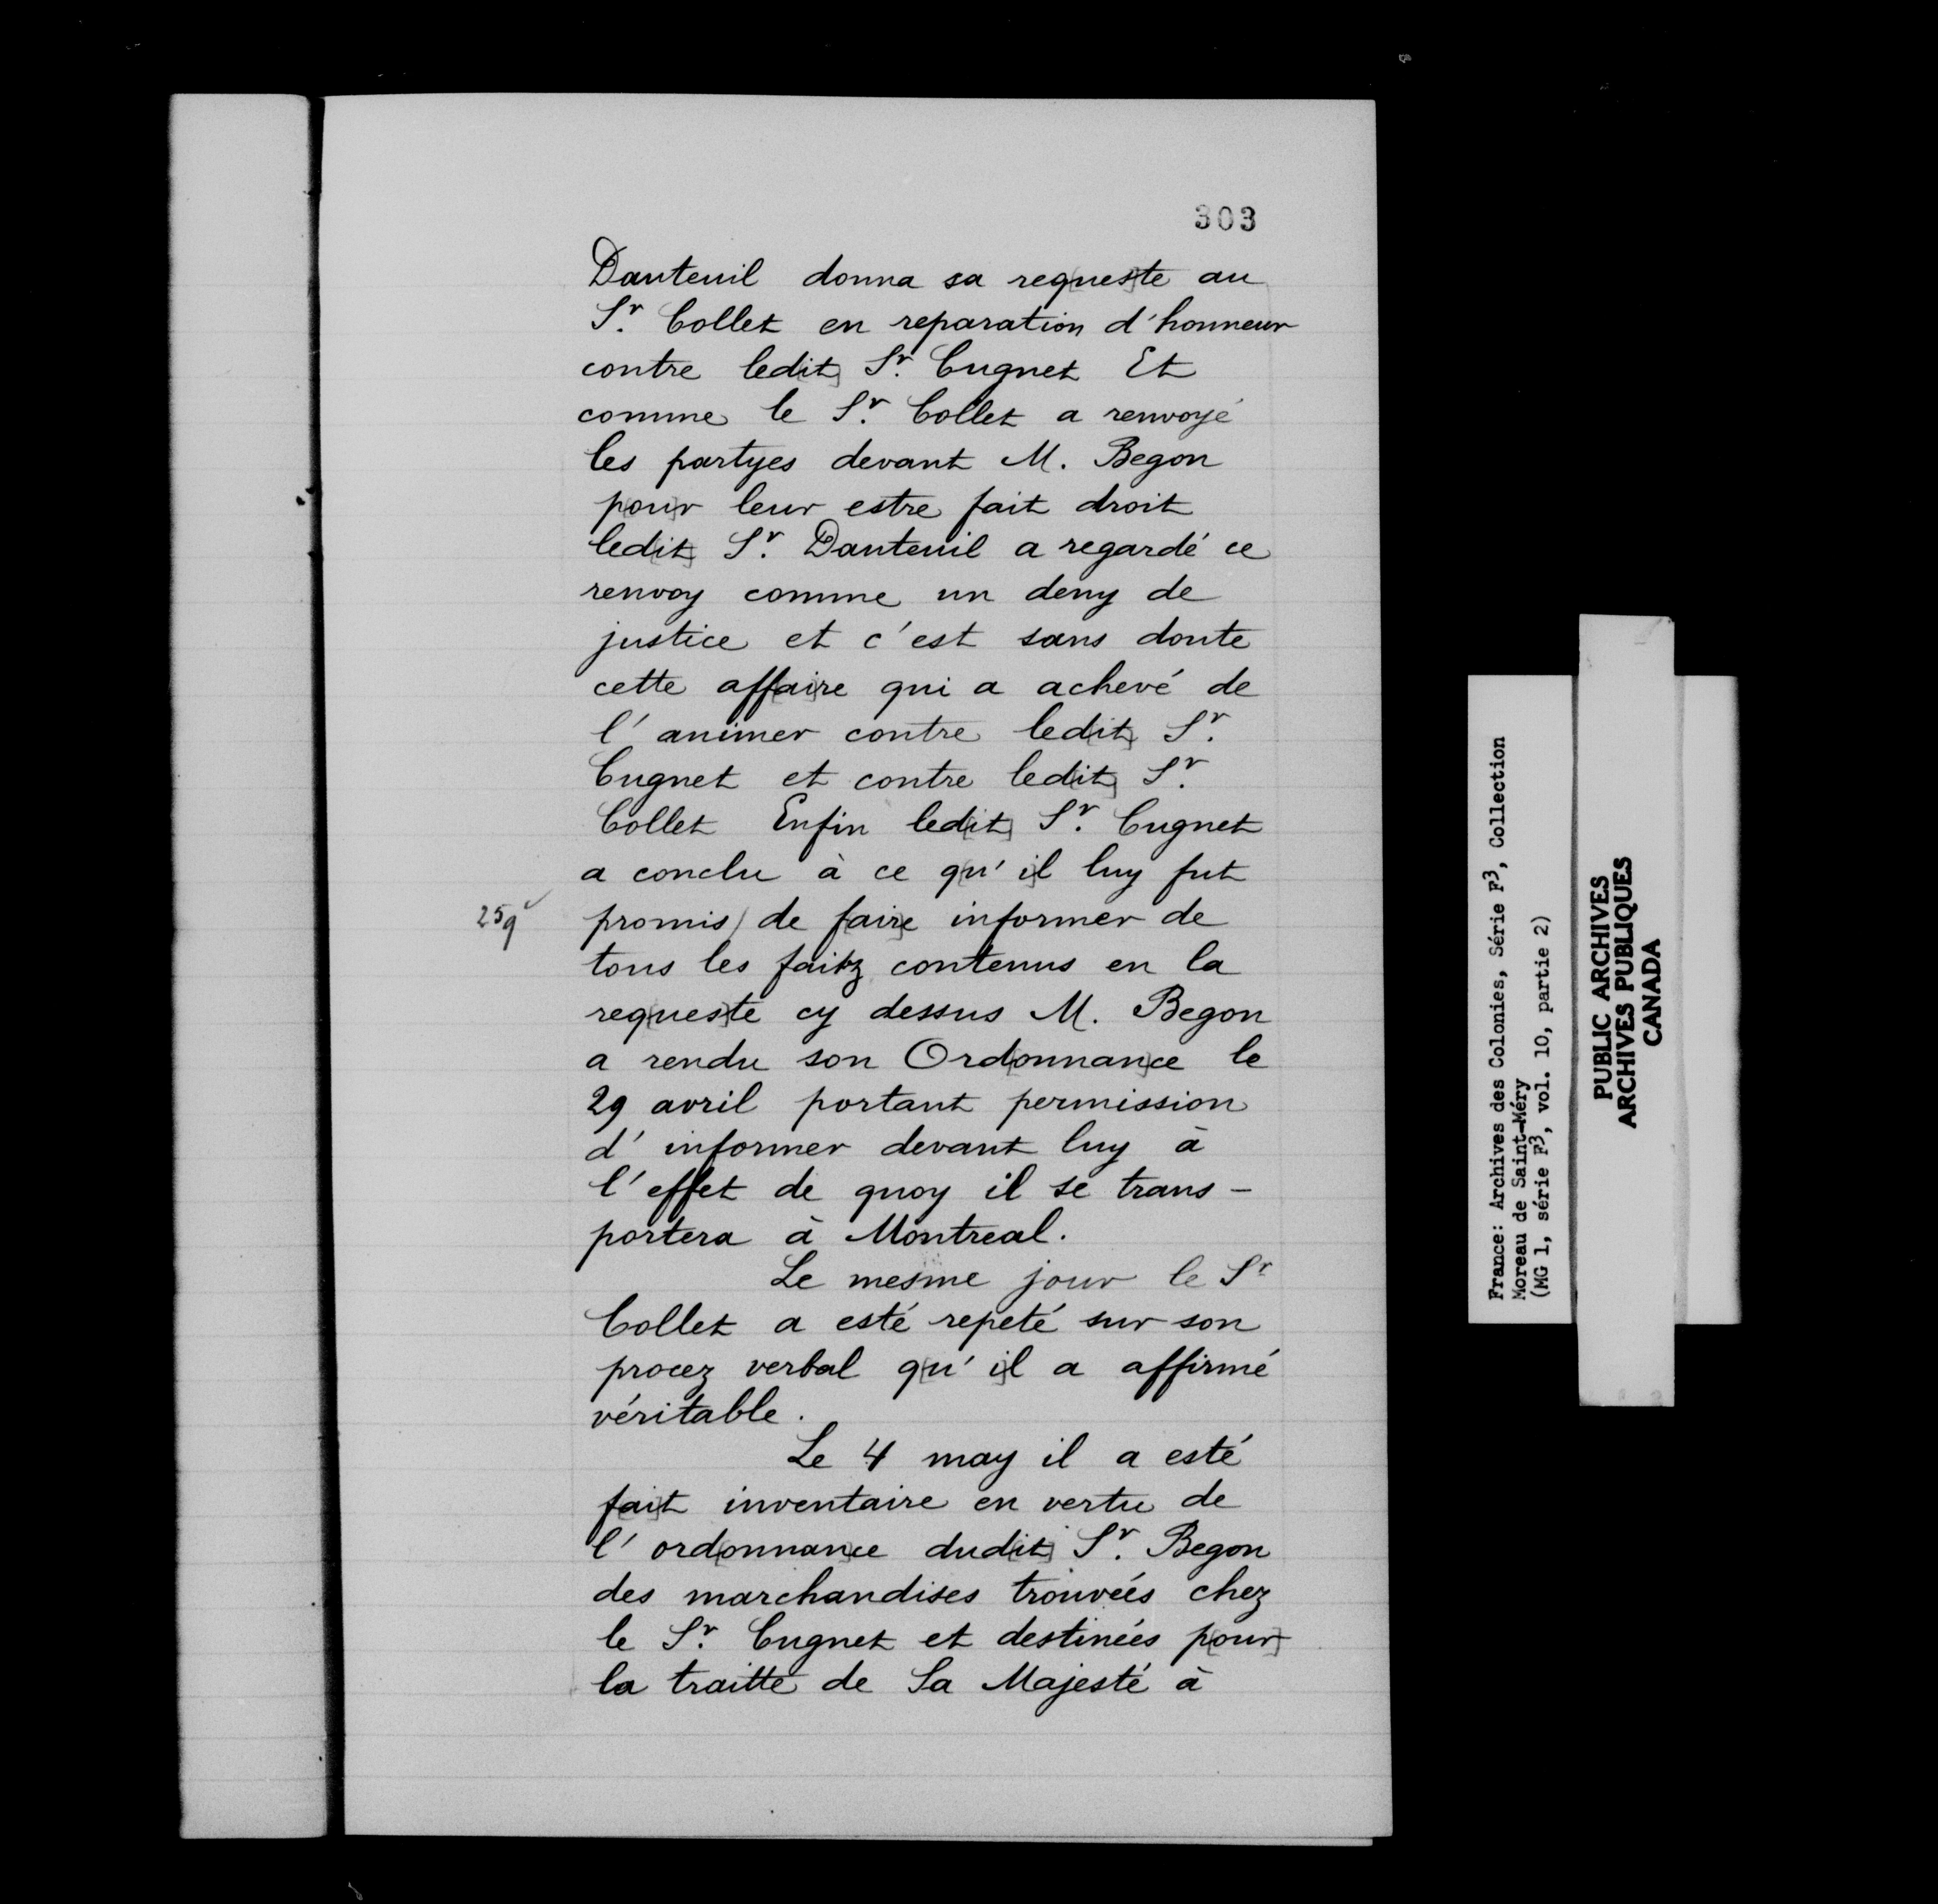 303
Dauteuil donna sa req[ues]te au
Sr. Collet en reparation d'honneur
contre led[it] Sr. Cugnet Et
comme le Sr. Collet a renvoyé
les partyes devant M. Begon
p[ou]r leur estre fait droit
led[it] Sr. Dauteuil a regardé ce
renvoy comme un deny de
justice et c'est sans doute
cette aff[ai]re qui a achevé de
l'animer contre led[it] Sr.
Cugnet et contre led[it] Sr.
Collet Enfin led[it] Sr. Cugnet
a conclu à ce q[u'i]l luy fut
259 promis / de f[air]e informer de
tous les faitz contenus en la
req[ues]te cy dessus M. Begon
a rendu son Ord[onnan]ce le
29 avril portant permission
d'informer devant luy à
l'effet de quoy il se trans-
portera à Montreal.
Le mesme jour le Sr
Collet a esté repeté sur son
procez verbal q[u'i]l a affirmé
véritable.
Le 4 may il a esté
f[ai]t inventaire en vertu de
l'ord[onnan]ce dud[it] Sr. Begon
des marchandises trouvées chez
le Sr. Cugnet et destinées p[our]
la traitte de Sa Majesté à
France: Archives des Colonies, Série F3, Collection
Moreau de Saint-Méry
(MG 1, série F3, vol. 10, partie 2)
PUBLIC ARCHIVES
ARCHIVES PUBLIQUES
CANADA